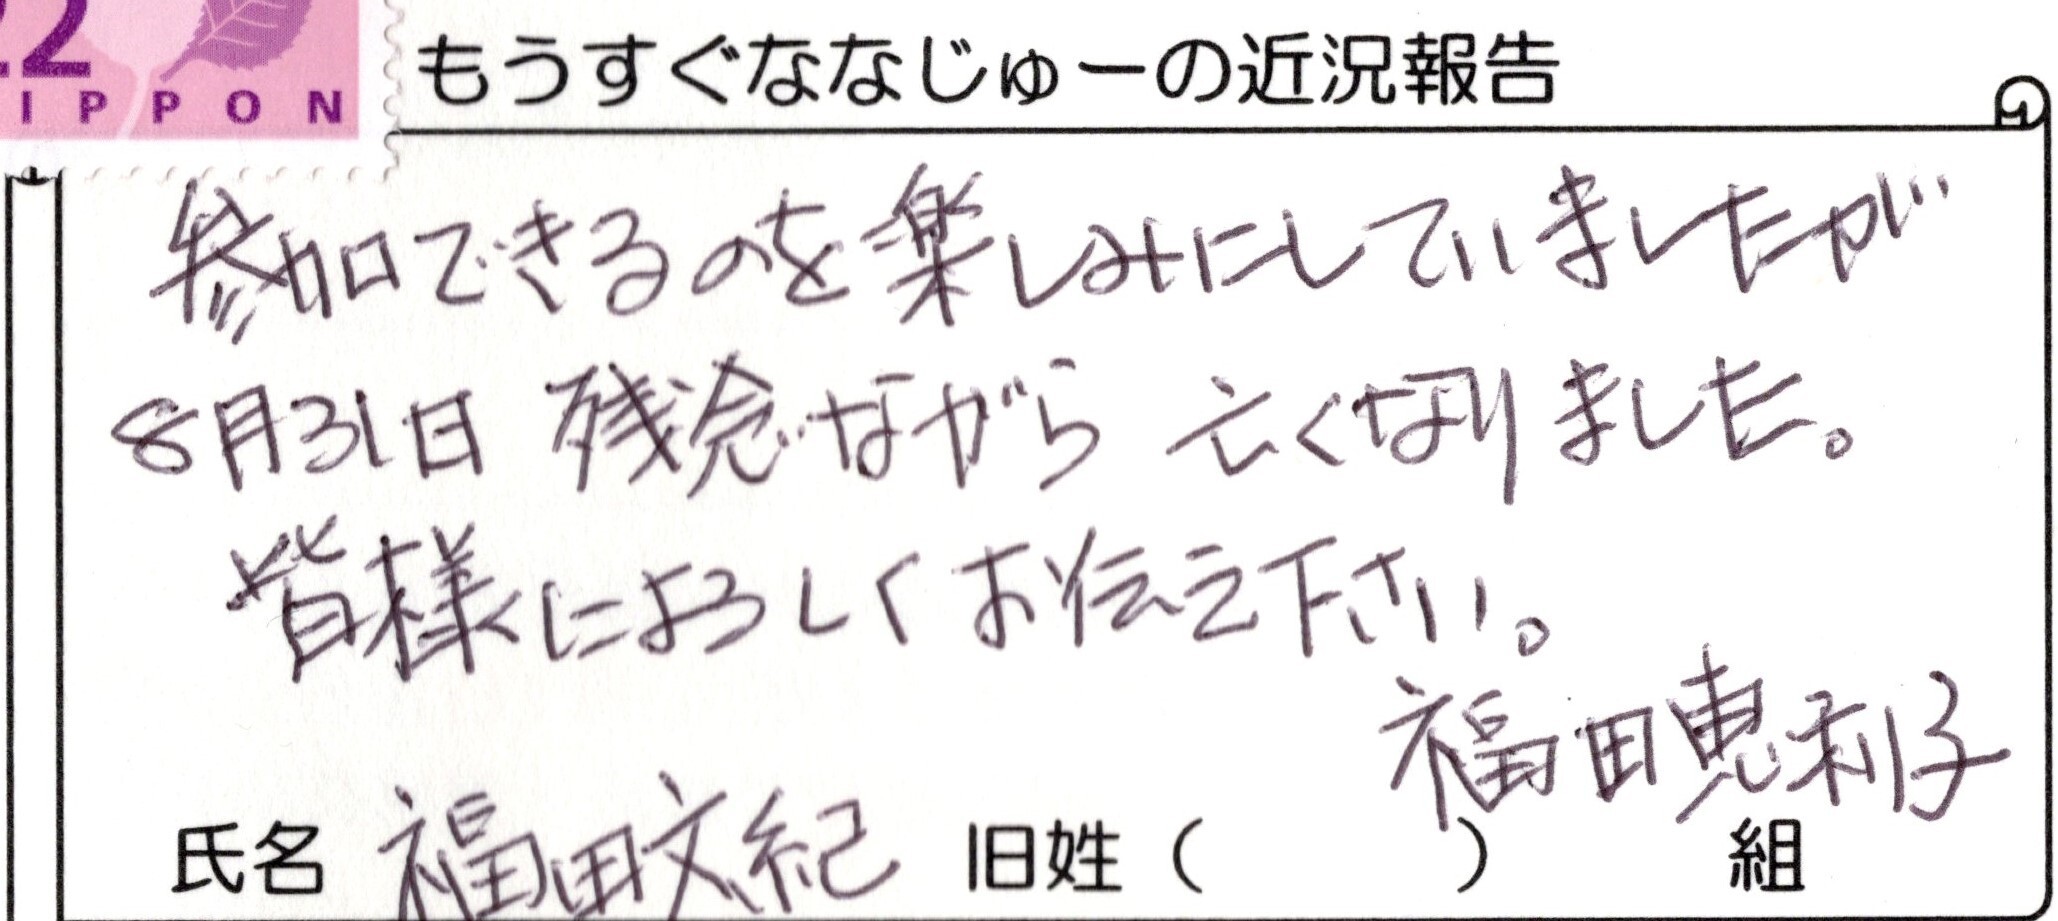 22
IPPON
もうすぐななじゅーの近況報告
参加できるのを楽しみにしていましたが
8月31日 残念ながら 亡くなりました。
皆様によろしくお伝え下さい。
福田恵利子
氏名 福田文紀 旧姓( ) 組